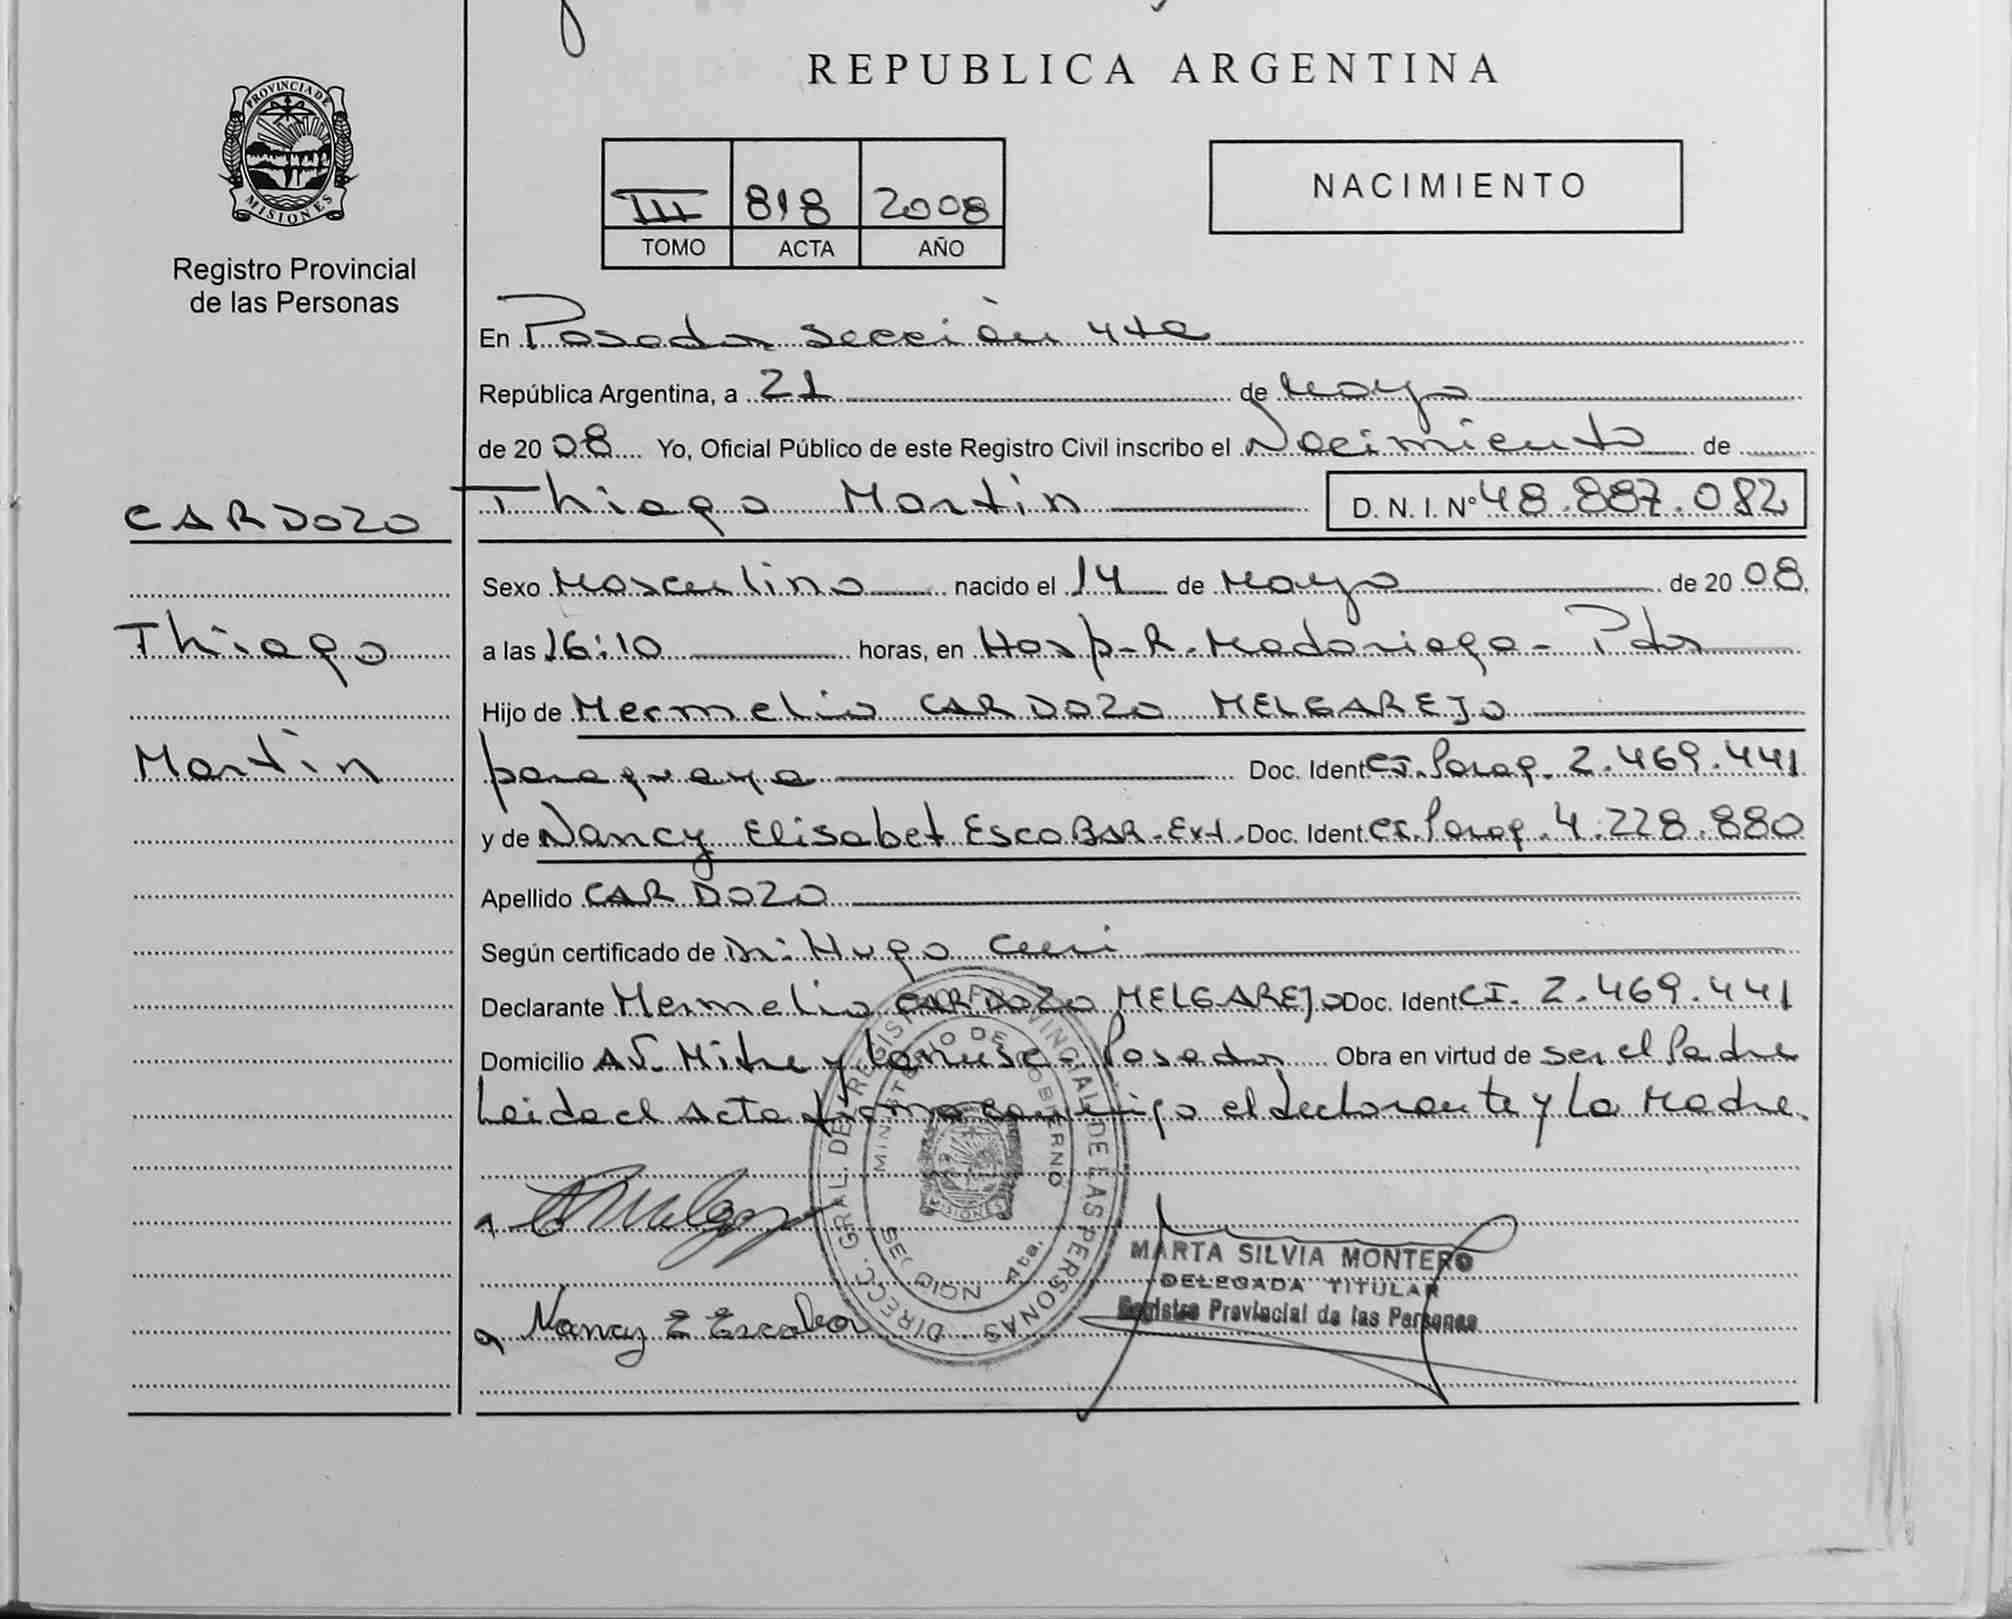 REPUBLICA ARGENTINA
PROVINCIA DE
MISIONES
Registro Provincial
de las Personas
NACIMIENTO
III 818 2008
TOMO ACTA AÑO
En Posadas sección 4ta
República Argentina, a 21 de Mayo
de 2008 Yo, Oficial Público de este Registro Civil inscribo el Nacimiento de
CARDOZO
Thiago Martín D. N. I. N° 48.887.082
Sexo Masculino nacido el 14 de Mayo de 2008
Thiago
a las 16:10 horas, en Hosp-R. Madariaga - Pdas
Hijo de Hermelio CARDOZO MELGAREJO
Martín
paraguaya Doc. Ident CI. Parag. 2.469.441
y de Nancy Elisabet EscoBAR - Ext. Doc. Ident CI. Parag. 4.228.880
Apellido CARDOZO
Según certificado de Dr: Hugo
Declarante Hermelio CARDOZO MELGAREJO Doc. Ident CI. 2.469.441
Domicilio AV. Mitre y Lanusse - Posadas Obra en virtud de ser el Padre
Leida el Acta firma conmigo el declarante y la Madre.
DIRECC. GRAL. DEL REGISTRO PROVINCIAL DE LAS PERSONAS
MINISTERIO DE GOBIERNO
MISIONES
SECCION 4ta.
MARTA SILVIA MONTERO
DELEGADA TITULAR
Registro Provincial de las Personas
Nancy E Escobar